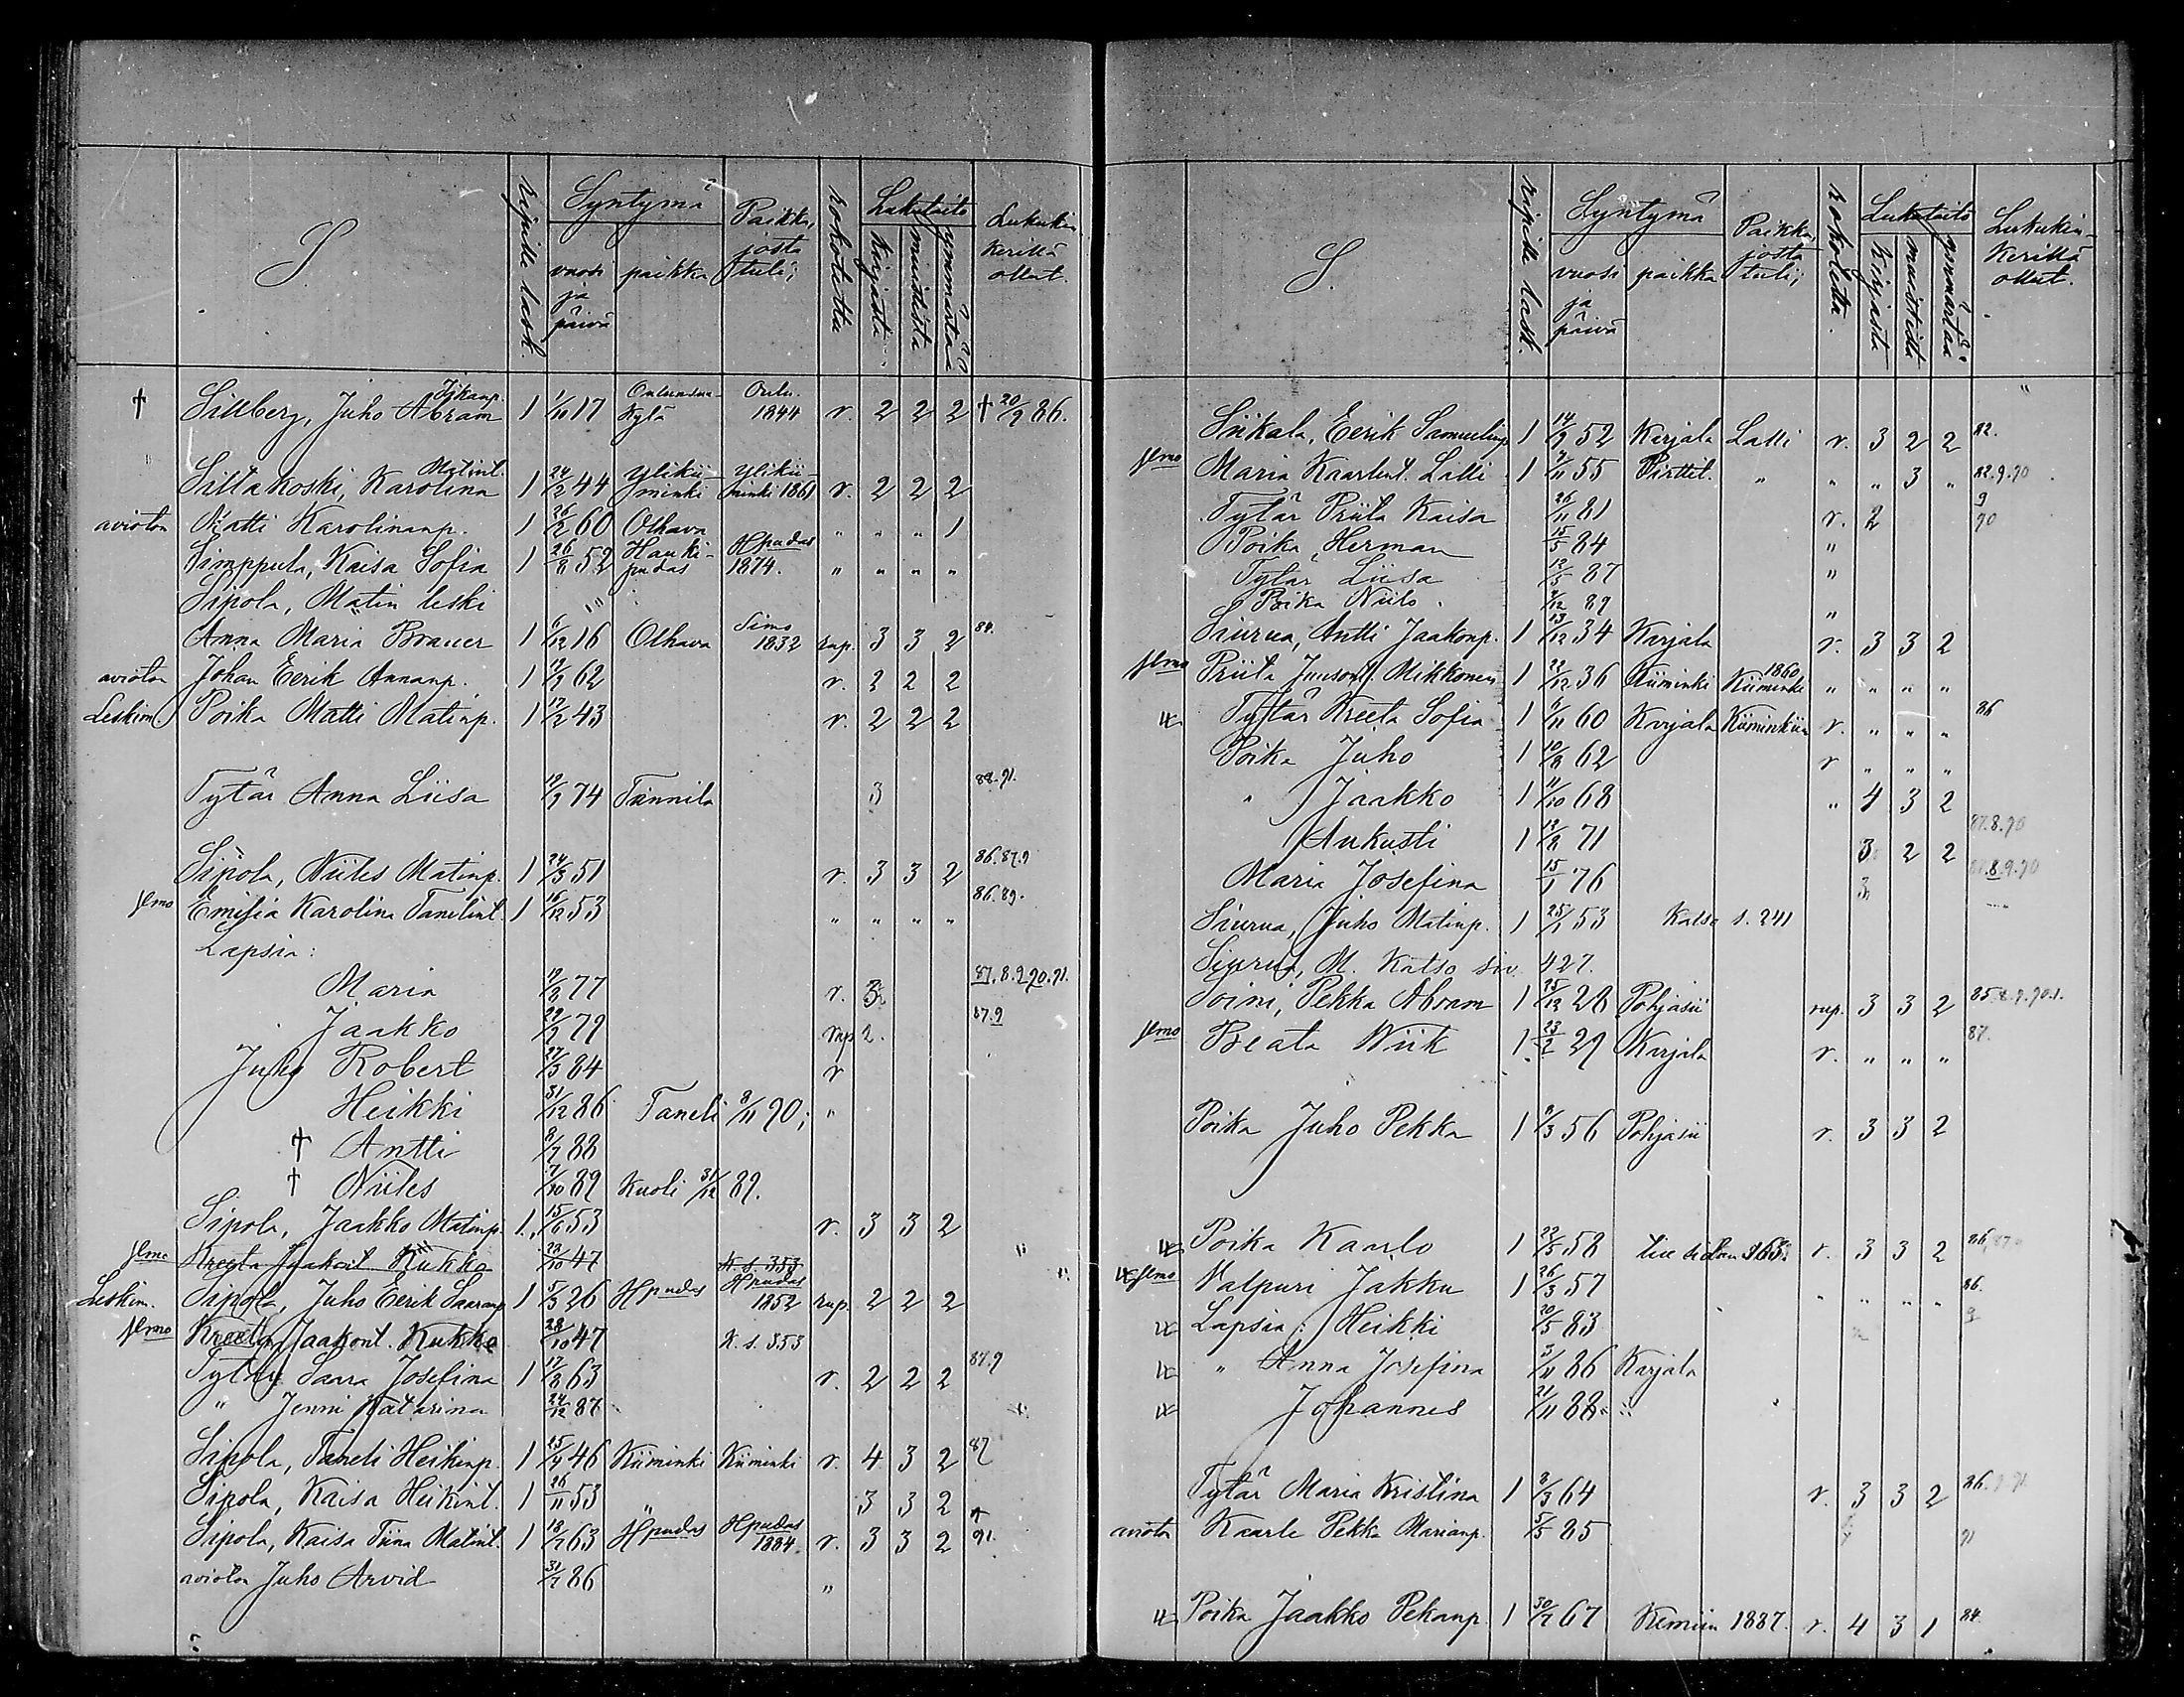 S.
ripille lask.
Syntymä
vuosi ja päivä
paikka
Paikka, josta tuli;
rokotettu
Lukutaito
kirjasta
muistista
ymmärtää
Lukukinkerillä ollut.
† Sillberg, Juho Abram Iskanp. 1 1/10 17 Oulunsuu-Kylä Oulu. 1844 r. 2 2 2 † 20/9 86.
Siltakoski, Karolina Matint. 1 24/2 44 Ylikiiminki Ylikiiminki 1861 r. 2 2 2
avioton Matti Karolinanp. 1 26/2 60 Olhava " " " 1
Simppula, Kaisa Sofia 1 26/8 52 Haukipudas Hpudas 1874. " " " "
Sipola, Matin leski
Anna Maria Brauer 1 6/12 16 Olhava Simo 1832 rup. 3 3 2 84.
avioton Johan Eerik Annanp. 1 19/9 62 r. 2 2 2
Leskim. Poika Matti Matinp. 1 17/2 43 r. 2 2 2
Tytär Anna Liisa 19/9 74 Tannila 3 88.91.
Sipola, Niiles Matinp. 1 24/3 51 r. 3 3 2 86.87.9
Emilia Karolina Tanelint. 1 16/12 53 " " " " 86.89.
Lapsia:
Maria 19/8 77 r. 3 87.8.9.90.91.
Jaakko 29/9 79 rup 2. 87.9
Juho Robert 27/3 84 r
Heikki 31/12 86 Taneli 8/11 90; "
† Antti 8/7 88
† Niiles 7/10 89 Kuoli 31/12 89.
Sipola, Jaakko Matinp. 1. 15/6 53 r. 3 3 2
Kreeta Jaakont. Kukko 28/10 47 K. s. 353
Leskim. Sipola, Juho Eerik Saaranp. 1 5/3 26 Hpudas Hpudas 1852 rup. 2 2 2
Kreeta Jaakont. Kukko 28/10 47 K. s. 353
Tytär Saara Josefina 1 17/8 63 r. 2 2 2 87.9
" Jenni Katarina 24/12 87
Sipola, Taneli Heikinp. 1 25/9 46 Kiiminki Kiiminki r. 4 3 2 87
Sipola, Kaisa Heikint. 1 26/11 53 " 3 3 2
Sipola, Kaisa Tiina Matint. 1 18/7 63 Hpudas Hpudas 1884. r. 3 3 2 91.
avioton Juho Arvid 31/7 86 "
S.
ripille lask.
Syntymä
vuosi ja päivä
paikka
Paikka, josta tuli;
rokotettu.
Lukutaito
kirjasta
muistista
ymmärtää
Lukukinkerillä ollut.
Siikala, Eerik Samuelinp. 1 14/9 52 Karjala Lalli r. 3 2 2 82.
Maria Kaarlent. Lalli 1 7/11 55 Pirttit. " " " 3 " 82.9.90
Tytär Priita Kaisa 26/11 81 r. 2 9
Poika Herman 15/5 84 " 90
Tytär Liisa 12/5 87 "
Poika Niilo 7/12 89 "
Siurua, Antti Jaakonp. 1 13/12 34 Karjala r. 3 3 2
Priita Juusont. Mikkonen 1 22/12 36 Kiiminki Kiiminki 1860 " " " "
Tytär Kreeta Sofia 1 6/11 60 Karjala Kiiminkiin r. " " " 86
Poika Juho 1 10/8 62 r " " "
" Jaakko 1 11/10 68 " 4 3 2
Aukusti 1 12/8 71 3 2 2 87.8.90
Maria Josefina 15/1 76 3 87.8.9.90
Siurua, Juho Matinp. 1 25/1 53 Katso s. 241
Siurua, M. Katso siv. 427.
Soini, Pekka Abram 1 25/12 28 Pohjasii rup. 3 3 2 85.8.9.90.1.
Beata Wiik 1 23/2 29 Karjala r. " " " 87.
Poika Juho Pekka 1 8/3 56 Pohjasii r. 3 3 2
Poika Kaarlo 1 22/5 58 r. 3 3 2 86,87.
Valpuri Jakku 1 26/3 57 " " " " 86.
Lapsia: Heikki 20/5 83 9
" Anna Josefina 3/11 86 Karjala
Johannes 21/11 88
Tytär Maria Kristina 1 8/3 64 r. 3 3 2 86.
avioton Kaarle Pekka Marianp. 5/5 85 91
Poika Jaakko Pekanp. 1 30/7 67 Kemiin 1887. r. 4 3 1 84.